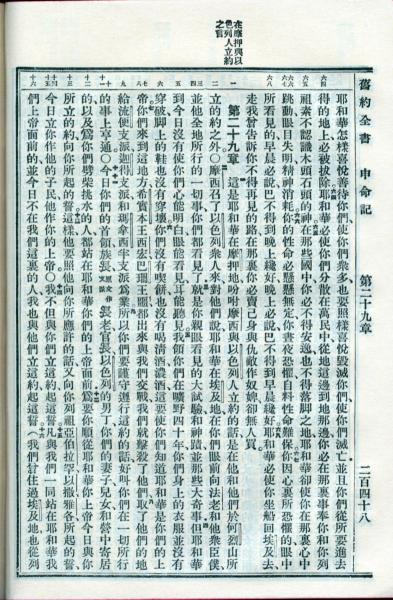 在摩押與以
色列人立約
之言
舊約全書 申命記 第二十九章 二百四十八
耶和華怎樣喜悅善待你們使你們衆多也要照樣喜悅毀滅你們使你們滅亡並且你們從所要進去
得的地上必被拔除耶和華必使你們分散在萬民中從地這邊到地那邊你必在那裏事奉你和你列
祖素不認識木頭石頭的神在那些國中你必不得安逸也不得落腳之地耶和華卻使你在那裏心中
跳動眼目失明精神消耗你的性命必懸懸無定你晝夜恐懼自料性命難保你因心裏所恐懼的眼中
所看見的早晨必說巴不得到晚上纔好晚上必說巴不得到早晨纔好耶和華必使你坐船回埃及去
走我曾告訴你不得再見的路在那裏你必賣己身與仇敵作奴婢卻無人買
第二十九章 這是耶和華在摩押地吩咐摩西與以色列人立約的話是在他和他們於何烈山所
立的約之外○摩西召了以色列衆人來對他們說耶和華在埃及地在你們眼前向法老和他衆臣僕
並他全地所行的一切事你們都看見了就是你親眼看見的大試驗和神蹟並那些大奇事但耶和華
到今日沒有使你們心能明白眼能看見耳能聽見我領你們在曠野四十年你們身上的衣服並沒有
穿破腳上的鞋也沒有穿壞你們沒有喫餅也沒有喝清酒濃酒這要使你們知道耶和華是你們的上
帝你們來到這地方希實本王西宏巴珊王噩都出來與我們交戰我們就擊殺了他們取了他們的地
給流便支派迦得支派和瑪拿西半支派爲業所以你們要謹守遵行這約的話好叫你們在一切所行
的事上亨通○今日你們的首領族長原文作支派長老官長以色列的男丁你們的妻子兒女和營中寄居
的以及爲你們劈柴挑水的人都站在耶和華你們的上帝面前爲要你順從耶和華你上帝今日與你
所立的約向你所起的誓這樣他要照他向你所應許的話又向你列祖亞伯拉罕以撒雅各所起的誓
今日立你作他的子民他作你的上帝○我不但與你們立這約起這誓凡與我們一同站在耶和華我
們上帝面前的並今日不在我們這裏的人我也與他們立這約起這誓(我們曾住過埃及地也從列